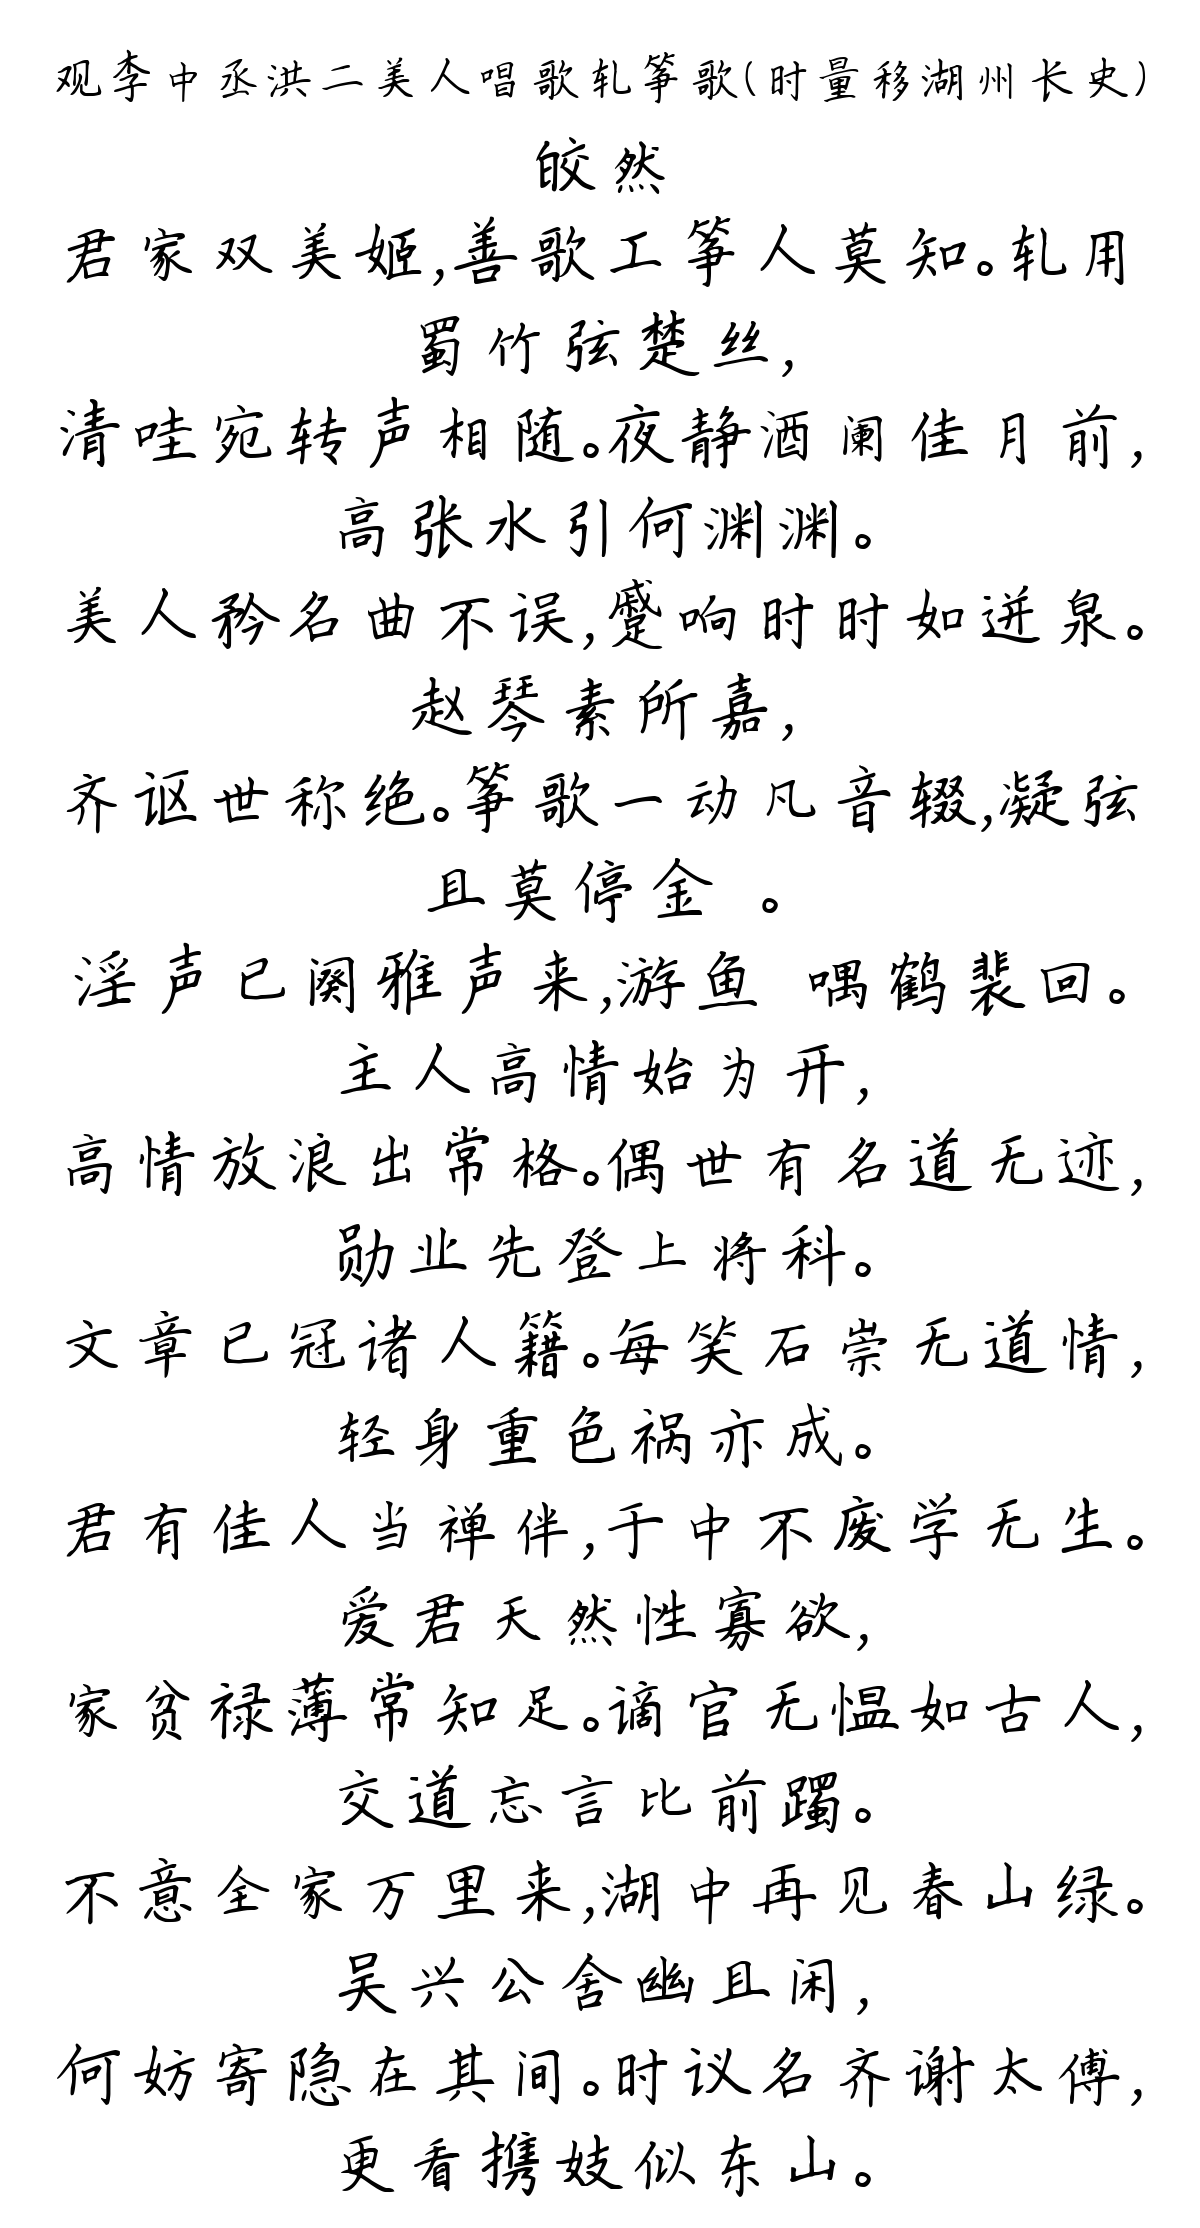 观李中丞洪二美人唱歌轧筝歌(时量移湖州长史)
皎然
君家双美姬,善歌工筝人莫知。轧用
蜀竹弦楚丝,
清哇宛转声相随。夜静酒阑佳月前,
高张水引何渊渊。
美人矜名曲不误,蹙响时时如迸泉。
赵琴素所嘉,
齐讴世称绝。筝歌一动凡音辍,凝弦
且莫停金 。
淫声已阕雅声来,游鱼 喁鹤裴回。
主人高情始为开,
高情放浪出常格。偶世有名道无迹,
勋业先登上将科。
文章已冠诸人籍。每笑石崇无道情,
轻身重色祸亦成。
君有佳人当禅伴,于中不废学无生。
爱君天然性寡欲,
家贫禄薄常知足。谪官无愠如古人,
交道忘言比前躅。
不意全家万里来,湖中再见春山绿。
吴兴公舍幽且闲,
何妨寄隐在其间。时议名齐谢太傅,
更看携妓似东山。